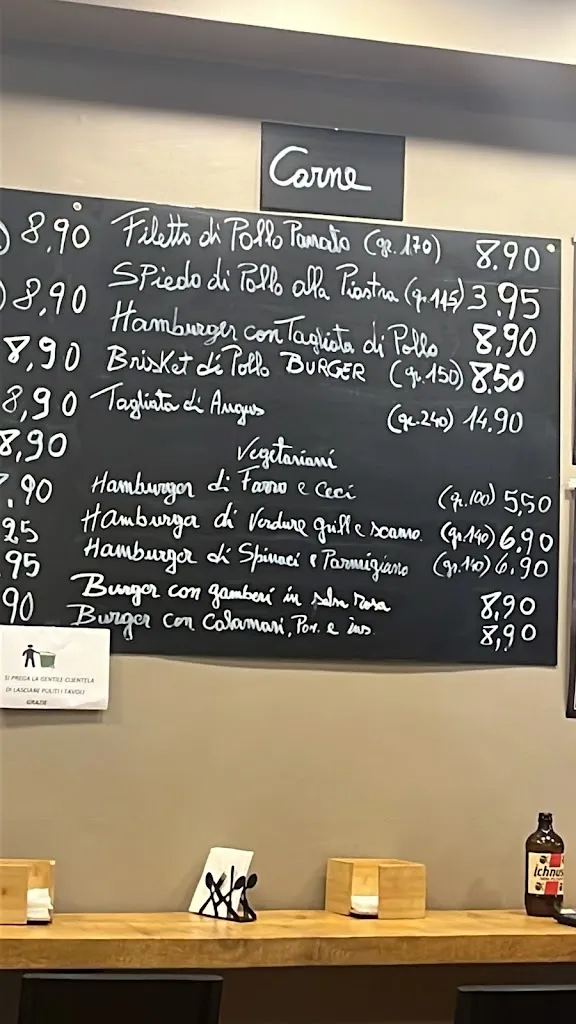 Carne
) 8,90 Filetto di Pollo Panato (gr. 170) 8,90
) 8,90 Spiedo di Pollo alla Piastra (gr. 145) 3,95
8,90 Hamburger con Tagliata di Pollo 8,90
8,90 Brisket di Pollo BURGER (gr. 150) 8,50
8,90 Tagliata di Angus (gr. 240) 14,90
Vegetariani
.90 Hamburger di Farro e Ceci (gr. 100) 5,50
25 Hamburger di Verdure grill e scamo. (gr. 140) 6,90
95 Hamburger di Spinaci e Parmigiano (gr. 140) 6,90
90 Burger con gamberi in salsa rosa 8,90
Burger con Calamari, Pom. e ins. 8,90
SI PREGA LA GENTILE CLIENTELA
DI LASCIARE PULITI I TAVOLI
GRAZIE
ichnus